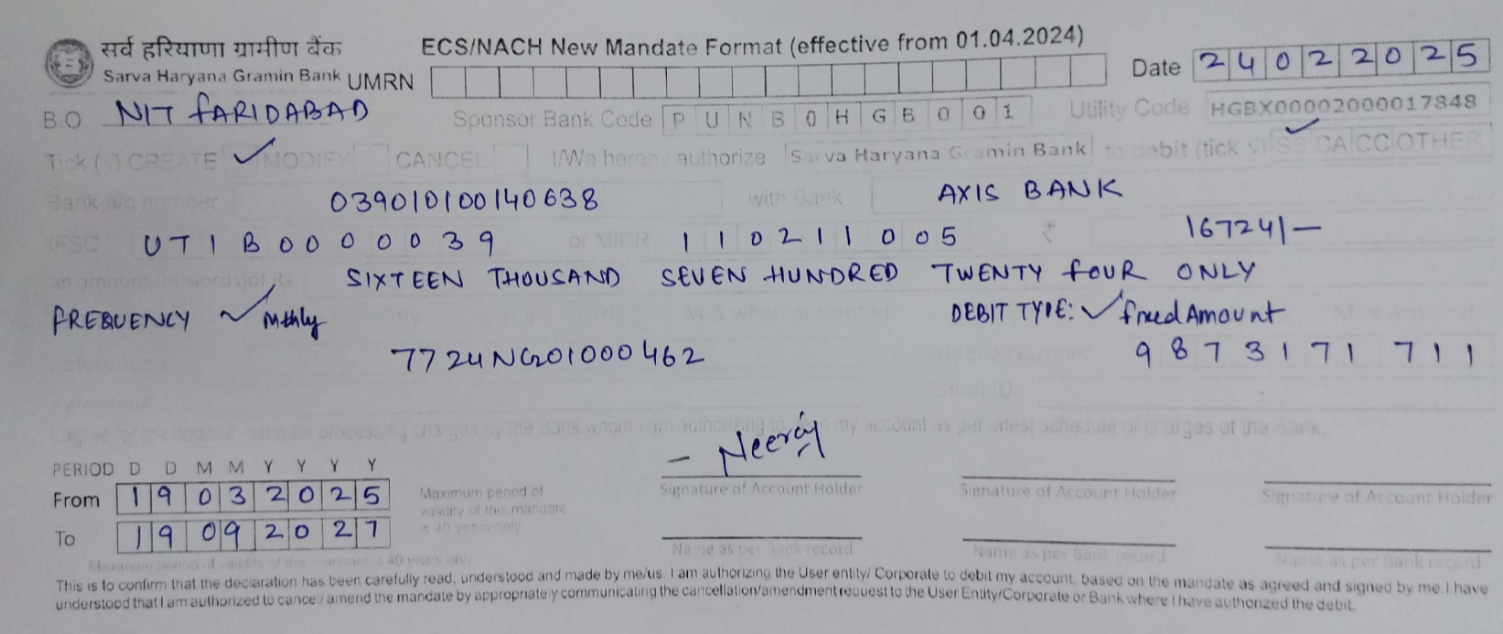 सर्व हरियाणा ग्रामीण बैंक
Sarva Haryana Gramin Bank
ECS/NACH New Mandate Format (effective from 01.04.2024)
UMRN
Date 24022025
B.O. NIT FARIDABAD
Sponsor Bank Code PUNB0HGB001
Utility Code HGBX00002000017848
Tick (√) CREATE ✓ MODIFY CANCEL I/We hereby authorize Sarva Haryana Gramin Bank to debit (tick √) ✓ SB CA CC OTHER
Bank a/c number 039010100140638 with Bank AXIS BANK
IFSC UTIB0000039 or MICR 110211005 ₹ 16724/-
an amount in words SIXTEEN THOUSAND SEVEN HUNDRED TWENTY FOUR ONLY
FREQUENCY ✓ Mthly DEBIT TYPE: ✓ fixed Amount
7724NG01000462 Mobile Number 9873171711
Email ID
I agree for the debit of mandate processing charges by the Bank whom I am authorizing to debit my account as per latest schedule of charges of the Bank.
PERIOD D D M M Y Y Y Y
From 19032025
To 19092027
Maximum period of
validity of this mandate
is 40 years only
- Neeraj
Signature of Account Holder Signature of Account Holder Signature of Account Holder
Name as per Bank record Name as per Bank record Name as per Bank record
Maximum period of validity of this mandate is 40 years only
This is to confirm that the declaration has been carefully read, understood and made by me/us. I am authorizing the User entity/ Corporate to debit my account, based on the mandate as agreed and signed by me. I have
understood that I am authorized to cancel/ amend the mandate by appropriately communicating the cancellation/amendment request to the User Entity/Corporate or Bank where I have authorized the debit.